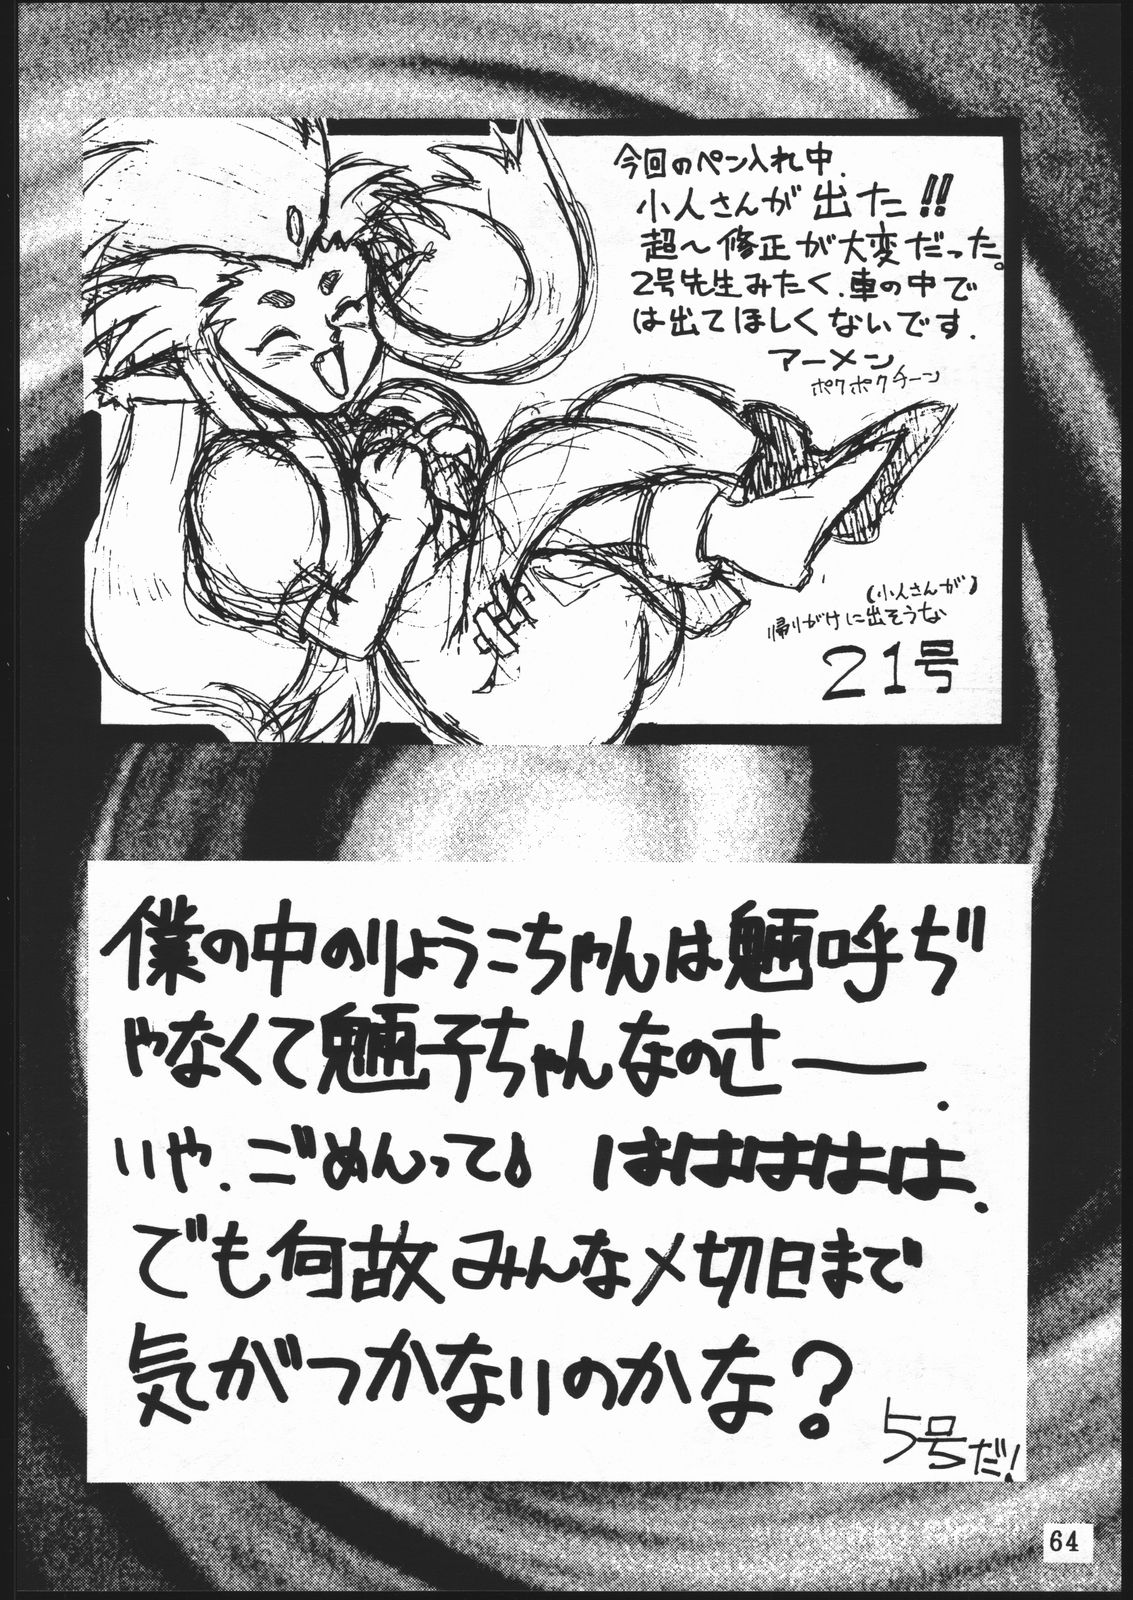 今回のペン入れ中、
小人さんが出た!!
超〜修正が大変だった。
2号先生みたく、車の中で
は出てほしくないです。
アーメン
ポクポクチーン
(小人さんが)
帰りがけに出そうな
21号
僕の中のりょうこちゃんは魎呼ぢ
ゃなくて魎子ちゃんなのさー.
いや、ごめんって♪ はははははは、
でも何故みんな〆切日まで
気がつかないのかな?
5号だ!
64